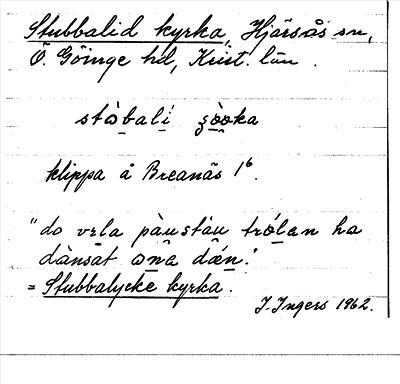 Stubbalid kyrka, Hjärsås sn,
Ö. Göinge hd, Krist. län.
stòbalí ʒòoka
klippa å Breanäs 1⁶.
"do vɛla pàustàu trólan ha
dànsat ɷna dǽn."
= Stubbalycke kyrka.
I. Ingers 1962.